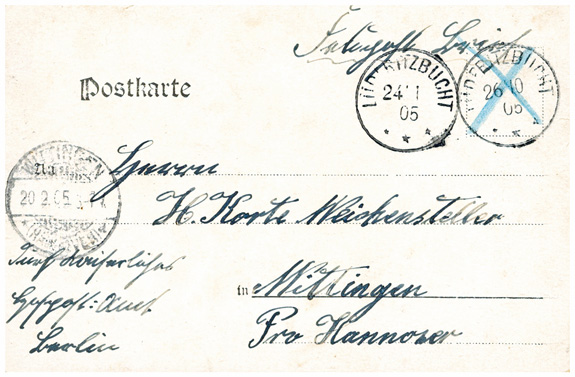 Feldpost Brief
Postkarte
LÜDERITZBUCHT
24 1
05
LÜDERITZBUCHT
26 10
05
WITTINGEN
20.2.05
(HANNOVER)
Herrn
H. Korte Weichensteller
in Wittingen
Prov Hannover
Durch Kaiserliches
Hofpost=Amt
Berlin